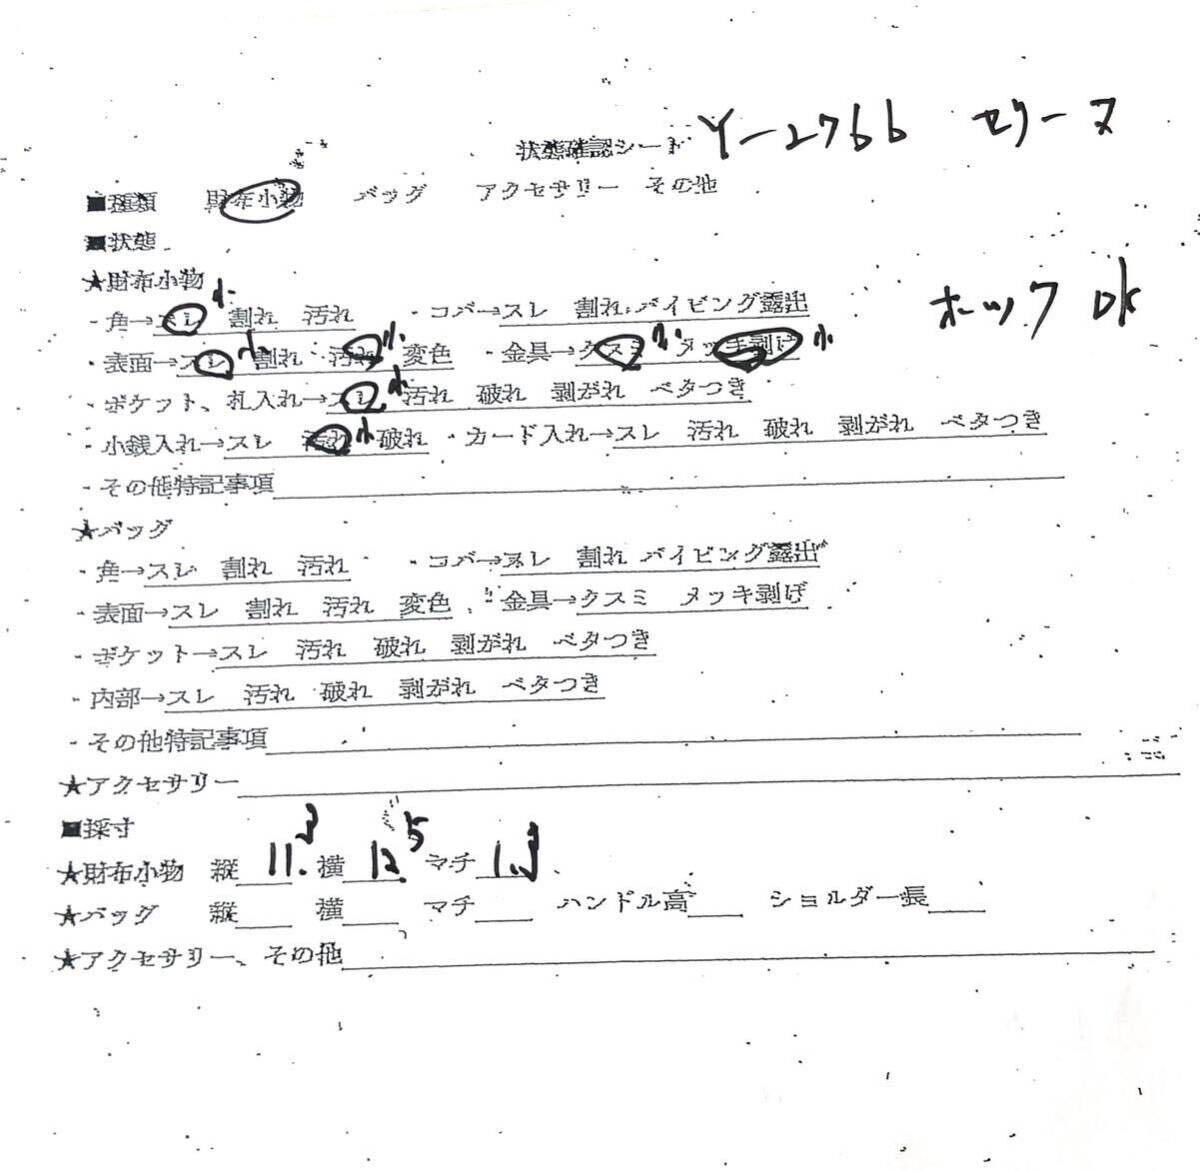 状態確認シート Y-2766 セリーヌ
■種類 財布小物 バッグ アクセサリー その他
■状態
★財布小物
・角→スレ 小 割れ 汚れ ・コバ→スレ 割れ パイピング露出 ホック OK
・表面→スレ 小 割れ 汚れ 小 変色 ・金具→クスミ 小 メッキ剥げ 小
・ポケット、札入れ→スレ 小 汚れ 破れ 剥がれ ベタつき
・小銭入れ→スレ 汚れ 小 破れ ・カード入れ→スレ 汚れ 破れ 剥がれ ベタつき
・その他特記事項
★バッグ
・角→スレ 割れ 汚れ ・コバ→スレ 割れ パイピング露出
・表面→スレ 割れ 汚れ 変色 ・金具→クスミ メッキ剥げ
・ポケット→スレ 汚れ 破れ 剥がれ ベタつき
・内部→スレ 汚れ 破れ 剥がれ ベタつき
・その他特記事項
★アクセサリー
■採寸
★財布小物 縦 11. 横 12.5 マチ 1.
★バッグ 縦 横 マチ ハンドル高 ショルダー長
★アクセサリー、その他